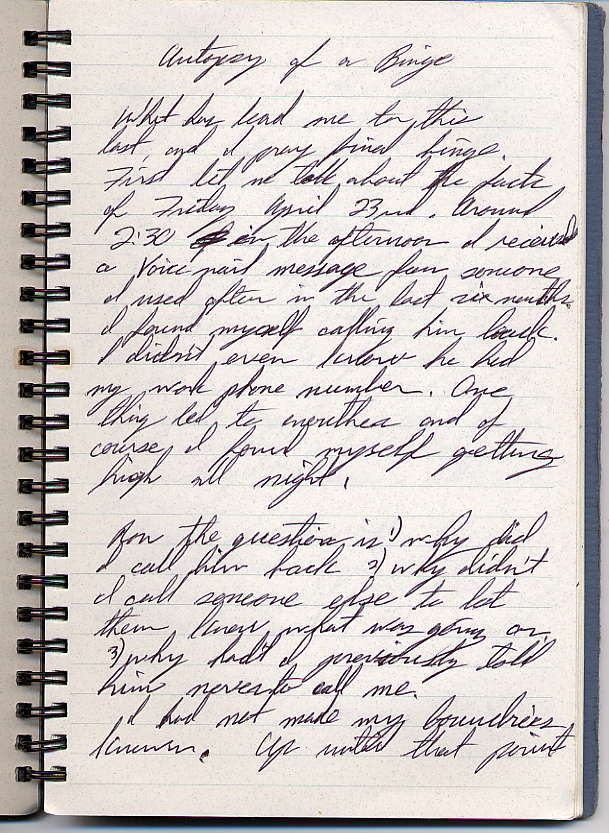 Autopsy of a Binge
What has lead me to this
last, and I pray final binge.
First let me talk about the facts
of Friday April 23rd. Around
2:30 in the afternoon I received
a voice mail message from someone
I used often in the last six months.
I found myself calling him back.
I didn't even know he had
my work phone number. One
thing led to another and of
course I found myself getting
high all night.
Now the question is 1) why did
I call him back 2) why didn't
I call someone else to let
them know what was going on.
3) why hadn't I previously told
him never to call me.
I had not made my boundries
known. Up until that point